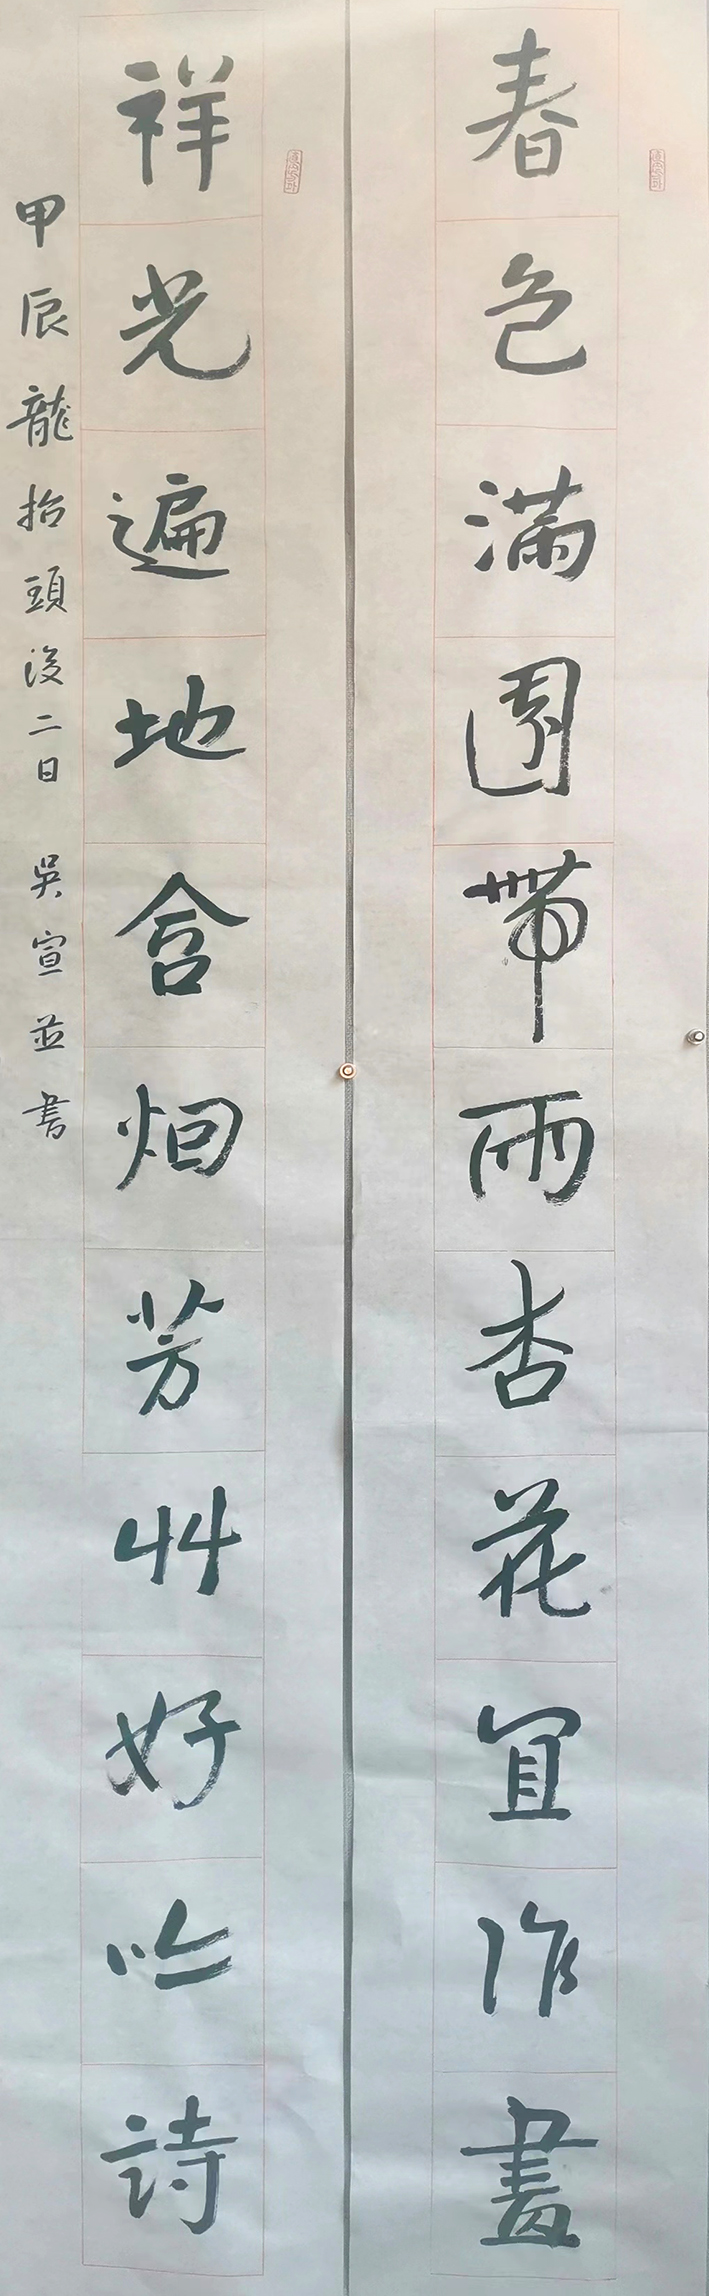 春色滿園帶雨杏花宜作畫
祥光遍地含烟芳艸好吟詩
甲辰龍抬頭後二日 吳宣並書